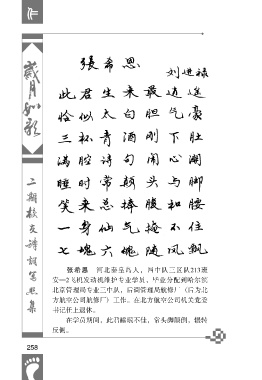 作
岁月如歌
二期校友诗词写照集
張希恩
刘进禄
此君生来最逍遥
恰似太白胆气豪
三杯青酒刚下肚
满腔诗句闹心潮
睡时常颠头与脚
笑来总捧腹和腰
一身仙气掩不住
七魂六魄随风飘
张希恩 河北秦皇岛人,四中队三区队213班
安—2飞机发动机维护专业学员,毕业分配到哈尔滨
北京管理局专业三中队,后调管理局航修厂(后为北
方航空公司航修厂)工作。在北方航空公司机关党委
书记任上退休。
在学员期间,此君睡眠不佳,常头脚颠倒,辗转
反侧。
258